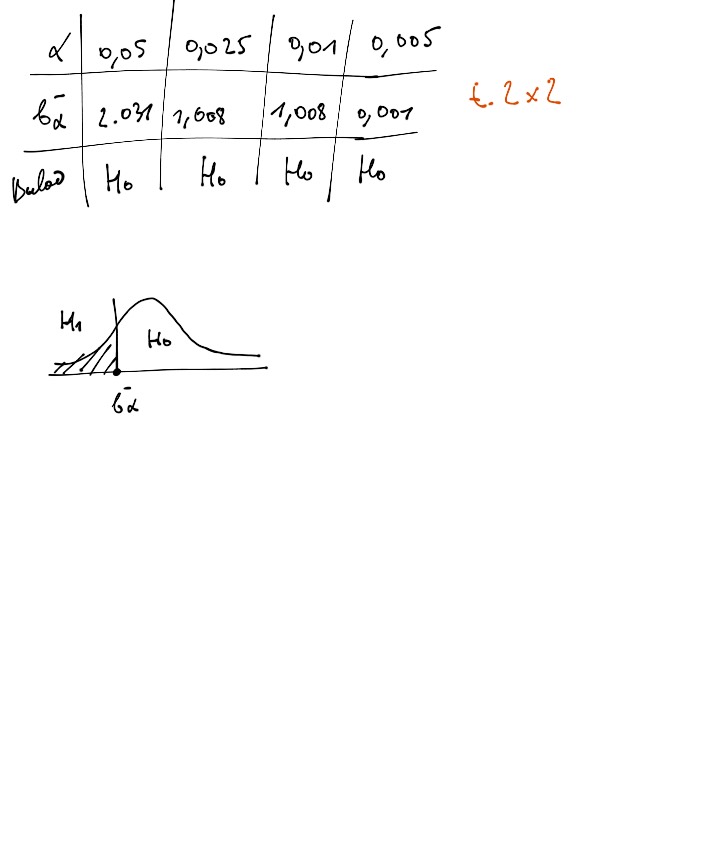 α 0,05 0,025 0,01 0,005
b⁻α 2.031 1,008 1,008 0,001
H₀ H₀ H₀ H₀
t. 2x2
H₁ H₀
b⁻α